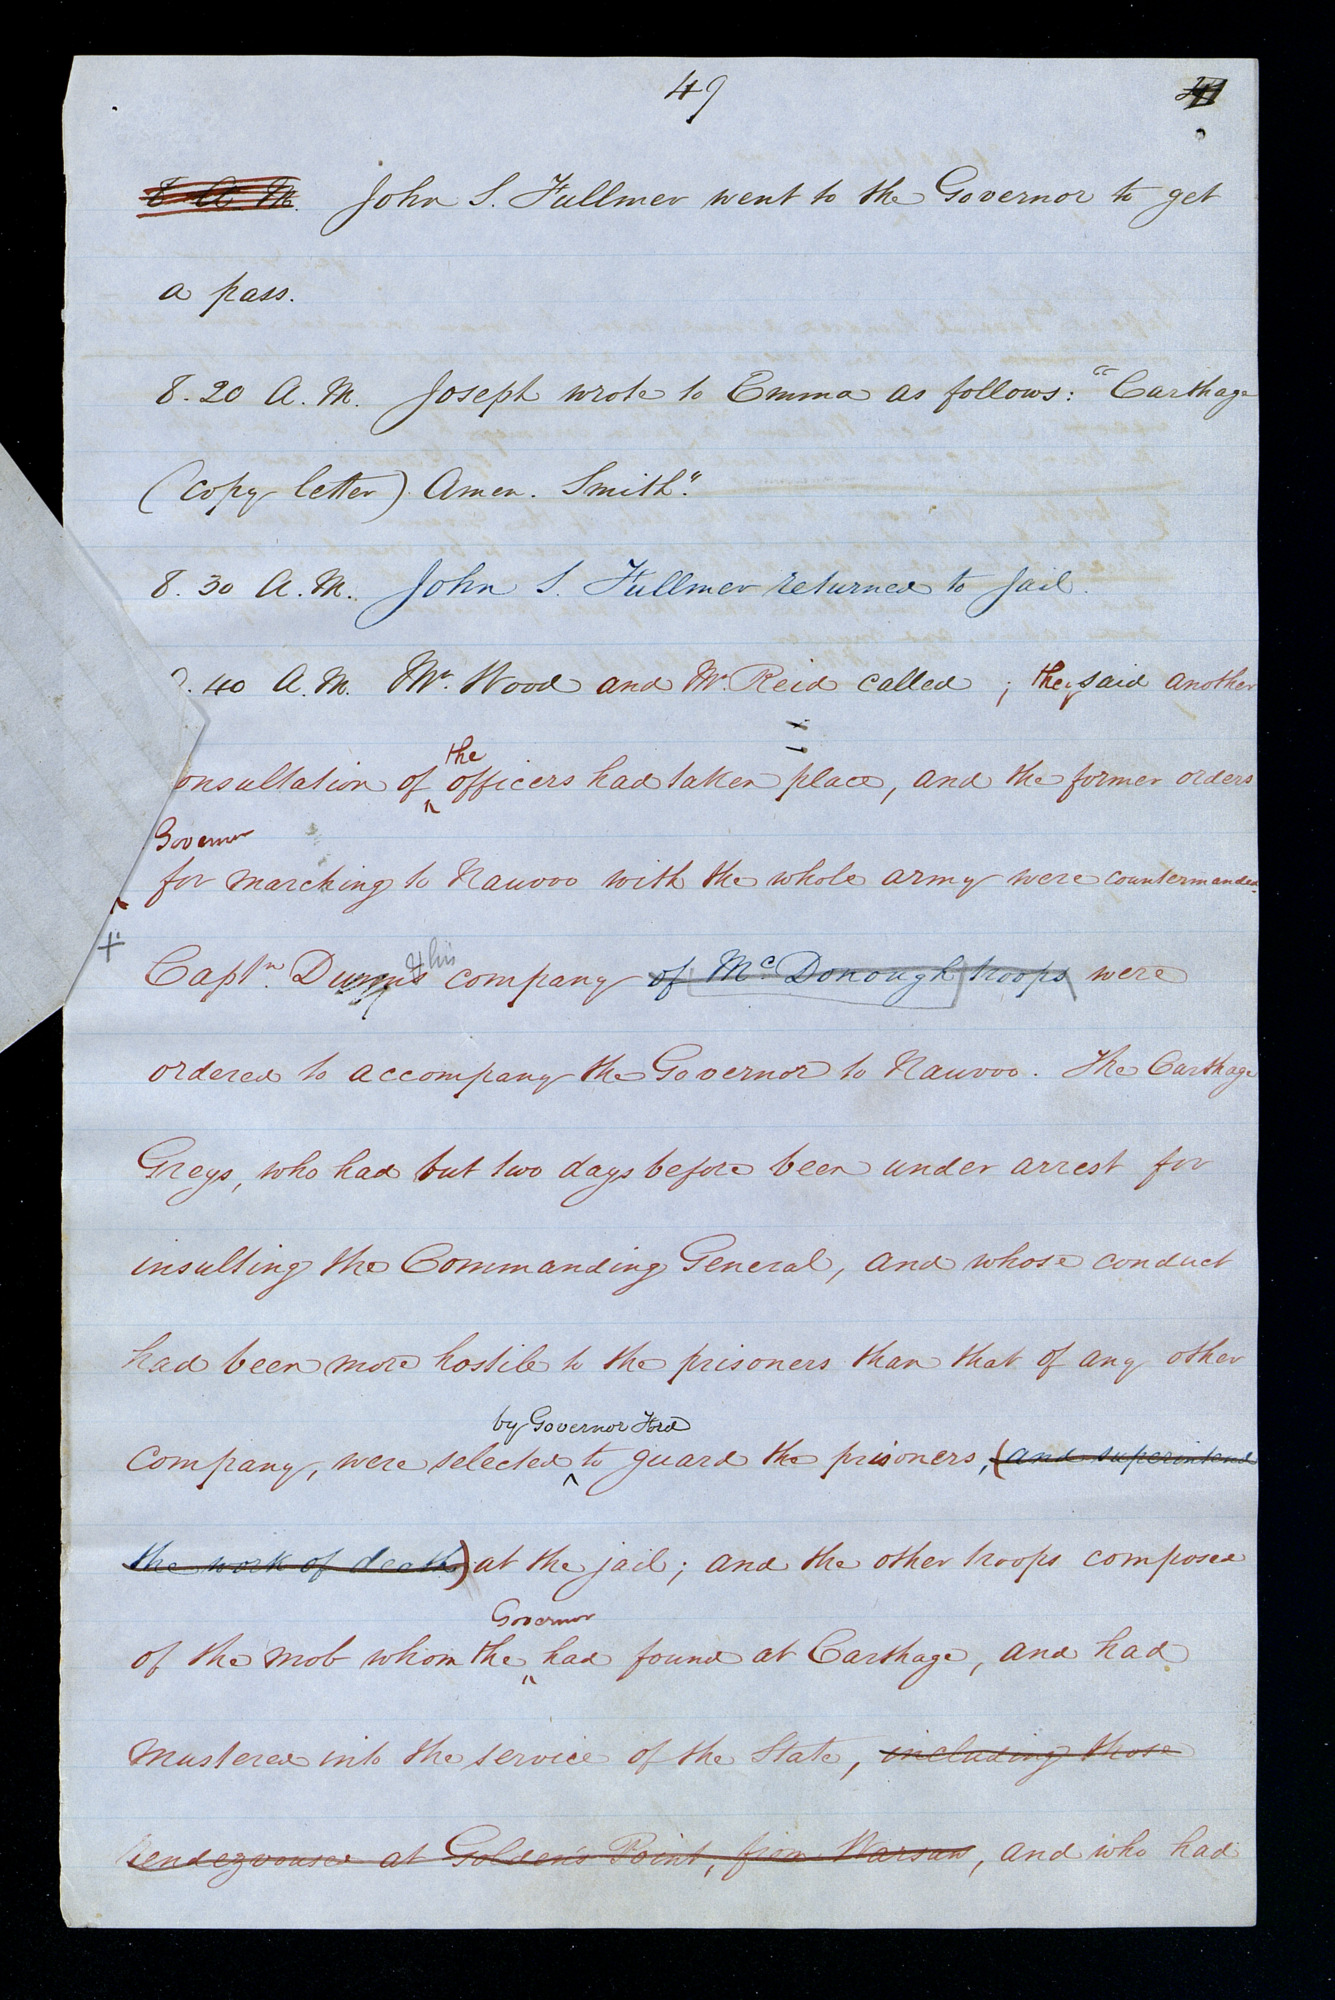 49
8 A. M. John S. Fullmer went to the Governor to get
a pass.
8. 20 A. M. Joseph wrote to Emma as follows: "Carthage
(copy letter) Amen. Smith".
8. 30 A. M. John S. Fullmer returned to Jail.
. 40 A. M. Mr. Wood and Mr. Reid called ; they said another
onsultation of the officers had taken place, and the former orders
Governor
for marching to Nauvoo with the whole army were countermanded.
+
Captn. Dunn & his company of McDonough troops were
ordered to accompany the Governor to Nauvoo. The Carthage
Greys, who had but two days before been under arrest for
insulting the Commanding General, and whose conduct
had been more hostile to the prisoners than that of any other
by Governor Ford
company, were selected ^ to guard the prisoners, (and superintend
the work of death) at the jail; and the other troops composed
Governor
of the mob whom the ^ had found at Carthage, and had
mustered into the service of the State, including those
rendezvoused at Golden's Point, from Warsaw, and who had